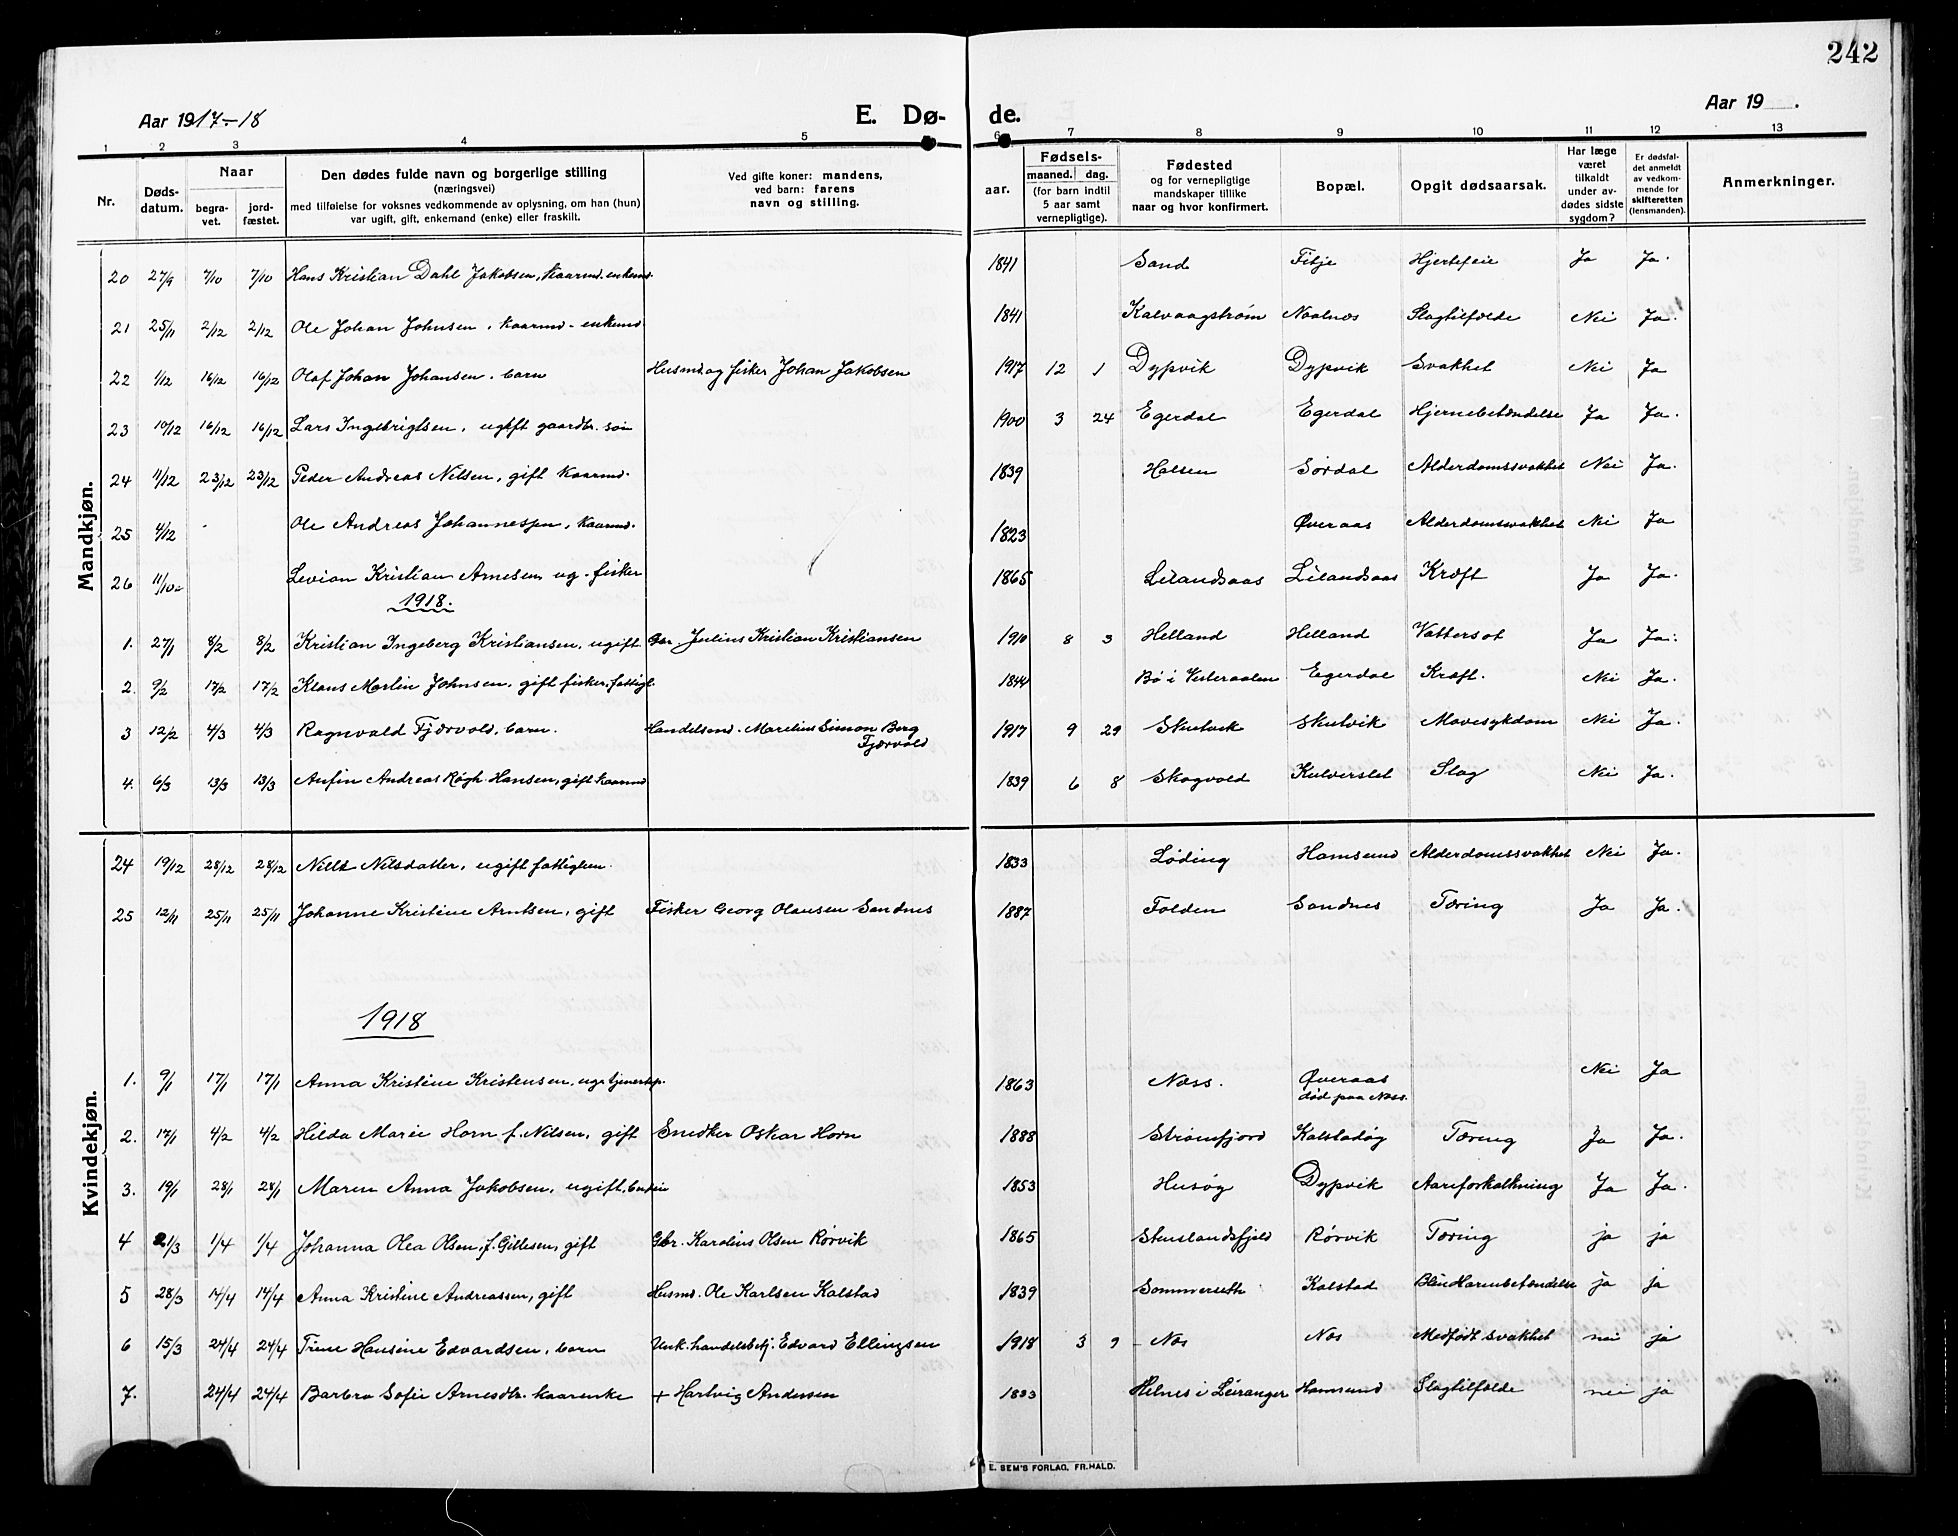 242
Aar 1917-18 E. Dø- de. Aar 19 .
1 2 3 4 5 6 7 8 9 10 11 12 13
Nr. Døds-datum. Naar begra-vet. jord-fæstet. Den dødes fulde navn og borgerlige stilling (næringsvei) med tilføielse for voksnes vedkommende av oplysning, om han (hun) var ugift, gift, enkemand (enke) eller fraskilt. Ved gifte koner: mandens, ved barn: farens navn og stilling. aar. Fødsels- maaned. dag. (for barn indtil 5 aar samt vernepligtige). Fødested og for vernepligtige mandskaper tillike naar og hvor konfirmert. Bopæl. Opgit dødsaarsak. Har læge været tilkaldt under av-dødes sidste sygdom? Er dødsfal-det anmeldt av vedkom-mende for skifteretten (lensmanden). Anmerkninger.
Mandkjøn.
20 27/9 7/10 7/10 Hans Kristian Dahl Jakobsen, kaarmd. enkemd. 1841 Sand Fitje Hjertefeil Ja Ja.
21 25/11 2/12 2/12 Ole Johan Johnsen, kaarmd - enkemd. 1841 Kalvaagstrøm Naalnæs Slagtilfælde Nei Ja.
22 1/12 16/12 16/12 Olaf Johan Johansen. barn Husmd. og fisker Johan Jakobsen 1917 12 1 Dypvik Dypvik Svakhet Nei Ja
23 10/12 16/12 16/12 Lars Ingebrigtsen, ugift gaardbr. søn 1900 3 24 Egerdal Egerdal Hjernebetændelse Ja Ja.
24 11/12 23/12 23/12 Peder Andreas Nilsen, gift kaarmd. 1839 Halsen Sørdal Alderdomssvakhet Nei Ja.
25 4/12 Ole Andreas Johannessen, kaarmd. 1823 Øveraas Alderdomssvakhet Nei Ja
26 11/10 Levion Kristian Arnesen ug. fisker 1865 Leilandsaas Leilandsaas Kræft Ja Ja.
1918.
1. 27/1 8/2 8/2 Kristian Ingeberg Kristiansen, ugift Gbr. Julius Kristian Kristiansen 1910 8 3 Helland Helland Vattersot Ja Ja.
2. 9/2 17/2 17/2 Klaus Martin Johnsen, gift fisker, fattigl. 1844 Bø i Vesteraalen Egerdal Kræft. Nei Ja.
3 12/2 4/3 4/3 Ragnvald Fjærvold, barn. Handelsmd. Marelius Simon Berg Fjærvold 1917 9 29 Skutvik Skutvik Mavesykdom Nei Ja.
4. 6/3 13/3 13/3 Anfin Andreas Røgh Hansen, gift kaarmd 1839 6 8 Skogvold Kulverslet Slag Nei Ja.
Kvindekjøn.
24 19/12 28/12 28/12 Nilse Nilsdatter, ugift fattiglem. 1833 Løding Hamsund Alderdomssvakhet Nei Ja.
25 12/11 25/11 25/11 Johanne Kristine Arntsen, gift Fisker Georg Olausen Sandnes 1887 Folden Sandnes Tæring Ja Ja.
1918
1. 9/1 17/1 17/1 Anna Kristine Kristensen, ug. tjenestep. 1863 Næss. Øveraas død paa Næss. Nei Ja
2. 17/1 4/2 4/2 Hilda Marie Horn f. Nilsen, gift Snedker Oskar Horn 1888 Strømfjord Kalstadøg Tæring Ja Ja.
3. 19/1 28/1 28/1 Maren Anna Jakobsen, ugift, 1853 Husøg Dypvik Aareforkalkning Ja Ja.
4 21/3 1/4 1/4 Johanna Olea Olsen, f. Gillesen, gift Gbr. Karolius Olsen Rørvik 1865 Stenslandsfjeld Rørvik Tæring ja ja
5 28/3 14/4 14/4 Anna Kristine Andreassen, gift Husmd. Ole Karlsen Kalstad 1839 Sommerseth Kalstad Blindtarmbetændelse ja ja
6 15/3 24/4 24/4 Trine Hansine Edvardsen, barn Unk. handelsbetj. Edvard Ellingsen 1918 3 9 Næs Næs Medfødt svakhet nei ja
7. 24/4 24/4 Barbro Sofie Arnesdtr. kaarenke + Hartvig Andersen 1833 Helnes i Leiranger Hamsund Slagtilfælde nei ja
E. SEM'S FORLAG, FR.HALD.